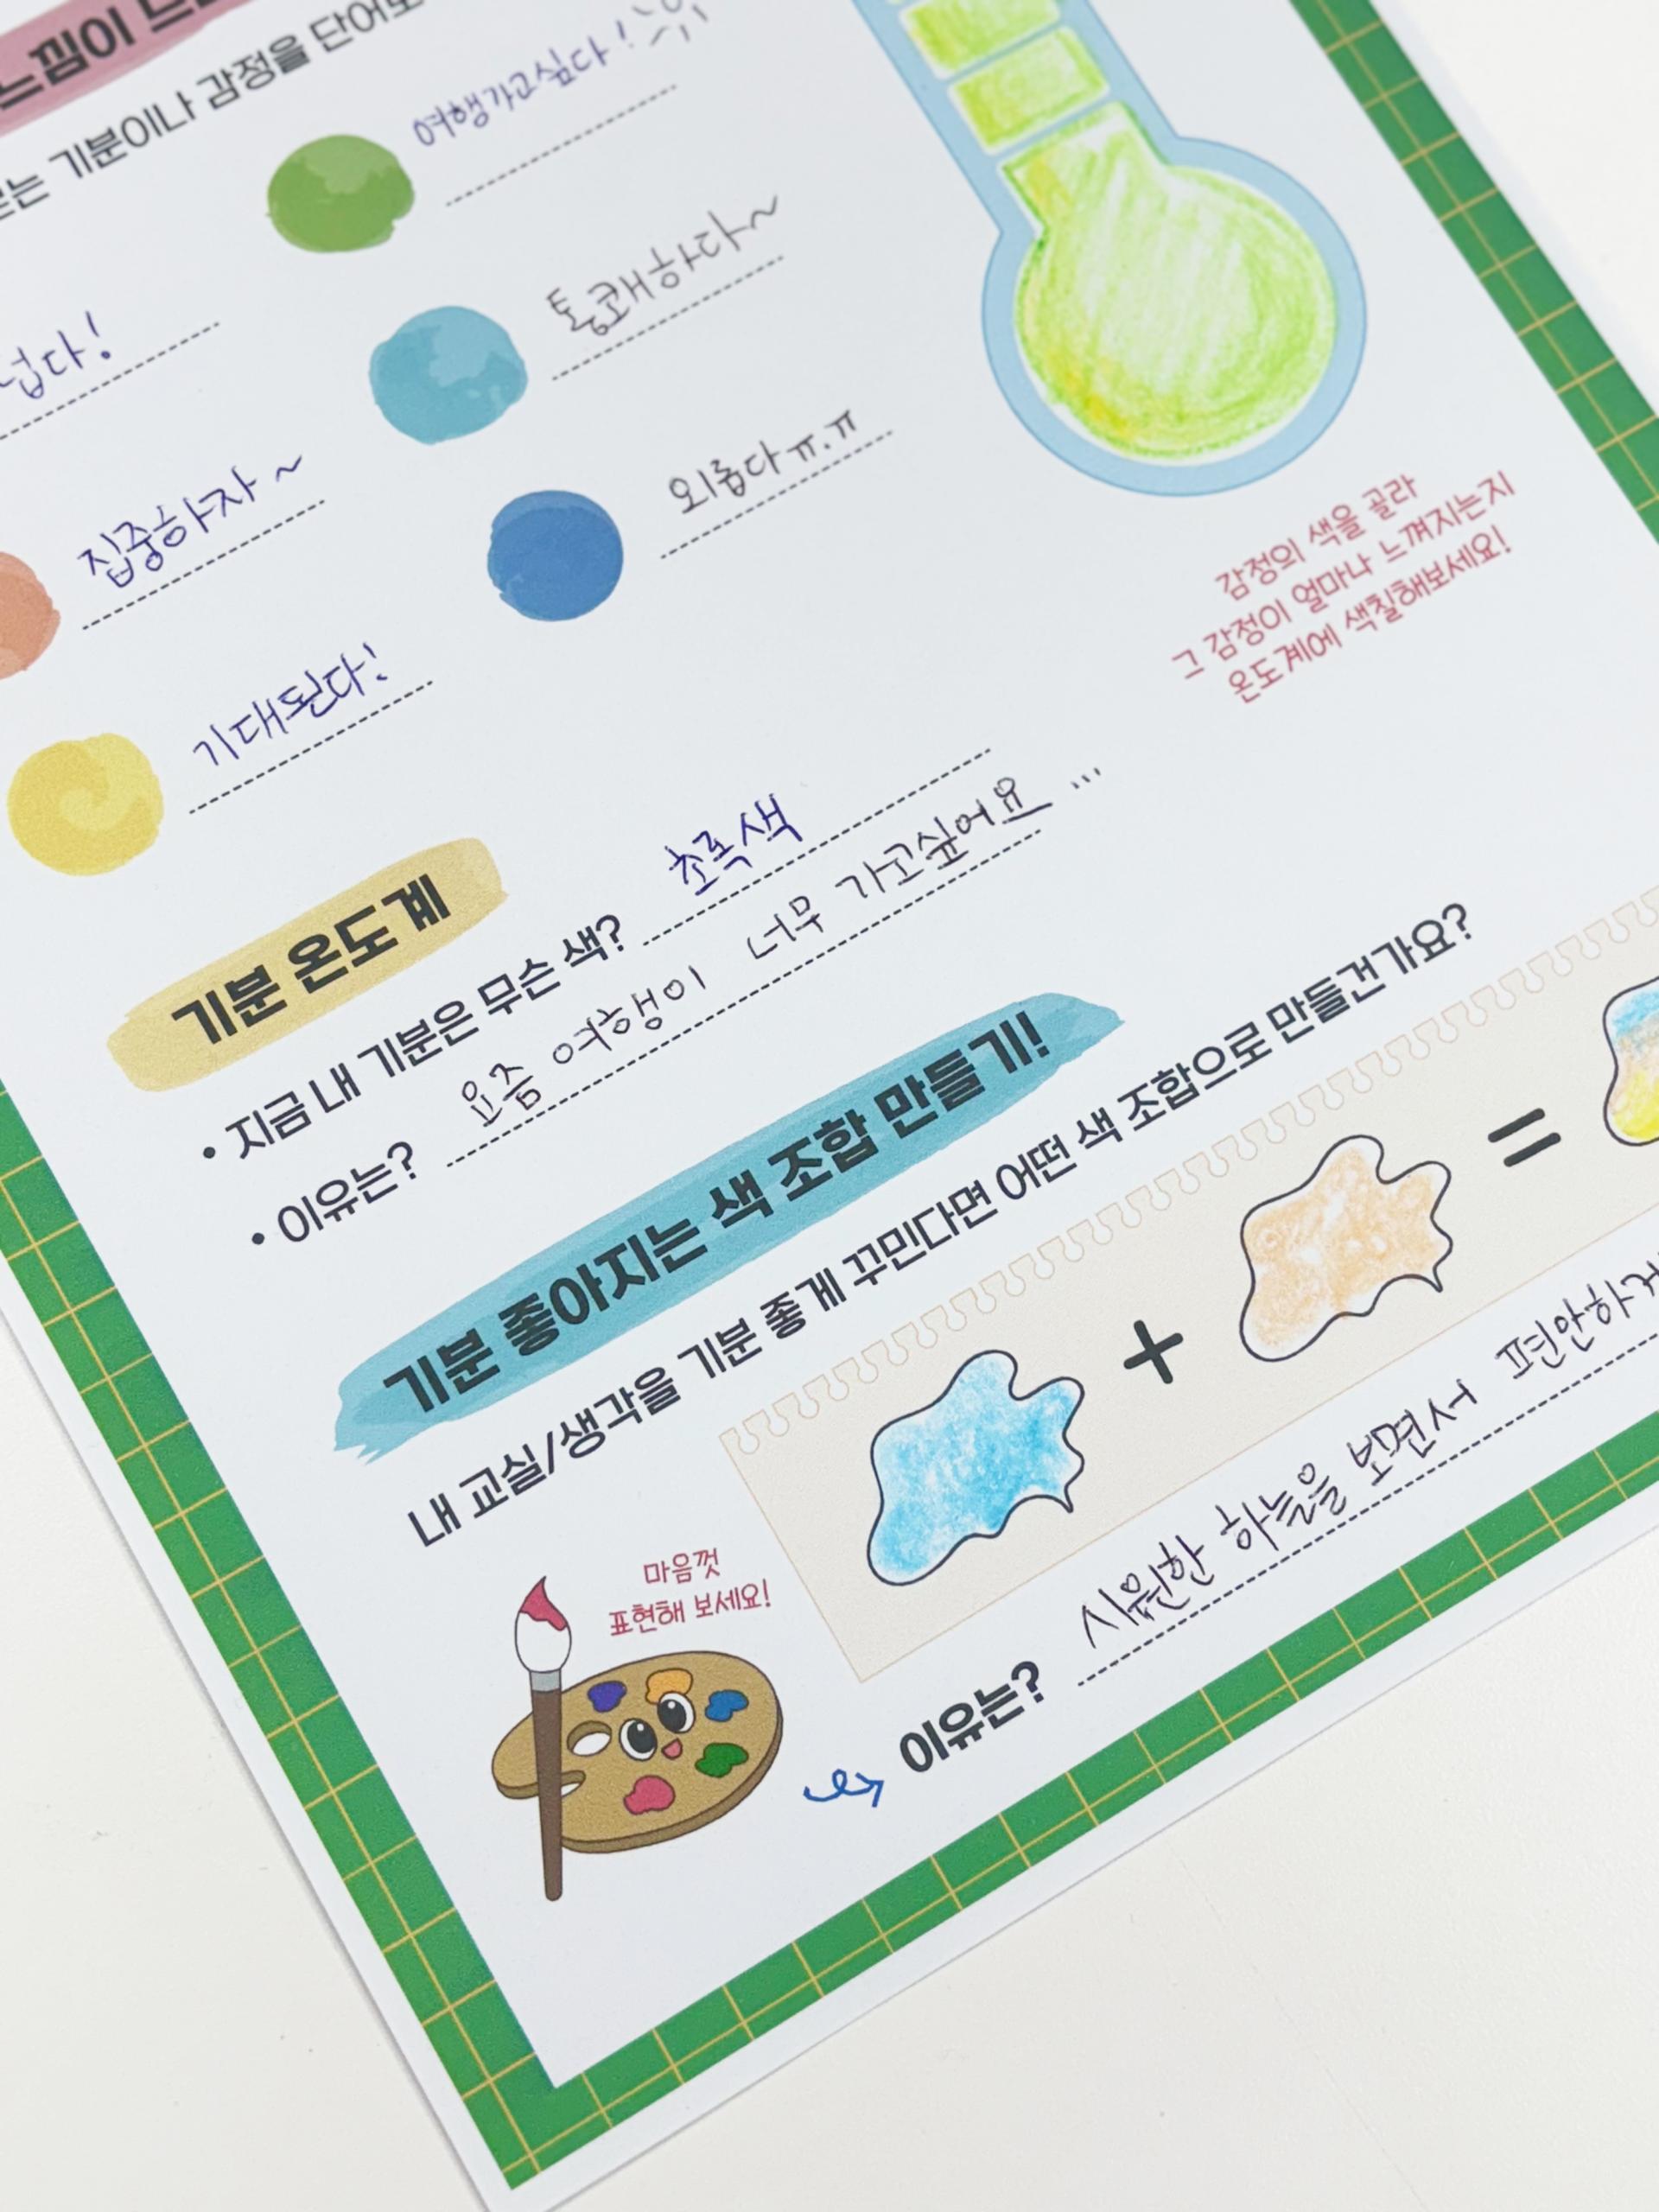 느낌이
기분이나 감정을 단어로
여행가고싶다!
통쾌하다~
집중하자~
외롭다ㅠ.ㅠ
기대된다!
감정의 색을 골라
그 감정이 얼마나 느껴지는지
온도계에 색칠해보세요!
기분 온도계
• 지금 내 기분은 무슨 색? 초록색
• 이유는? 요즘 여행이 너무 가고싶어요...
기분 좋아지는 색 조합 만들기!
내 교실/생각을 기분 좋게 꾸민다면 어떤 색 조합으로 만들건가요?
+ =
마음껏
표현해 보세요!
이유는? 시원한 하늘을 보면서 편안하게